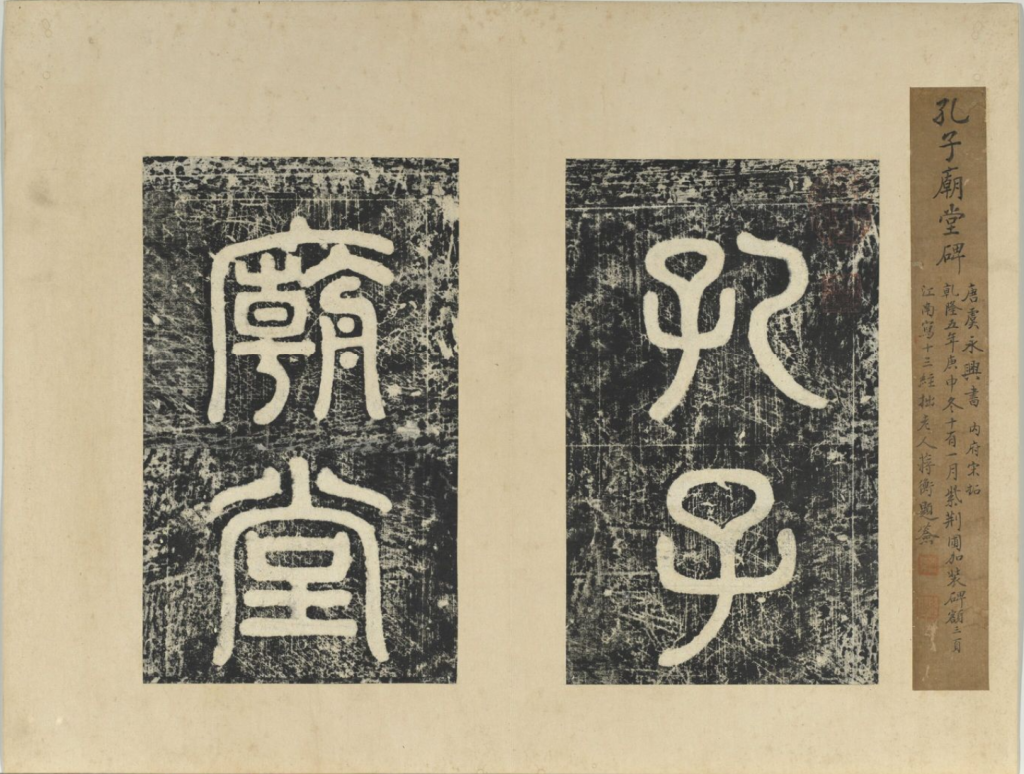 孔子廟堂碑
唐虞永興書 內府宋拓
乾隆五年庚申冬十有一月紫荆園加裝碑額三頁
江南寫十三經拙老人蔣衡題籤
孔子
廟堂